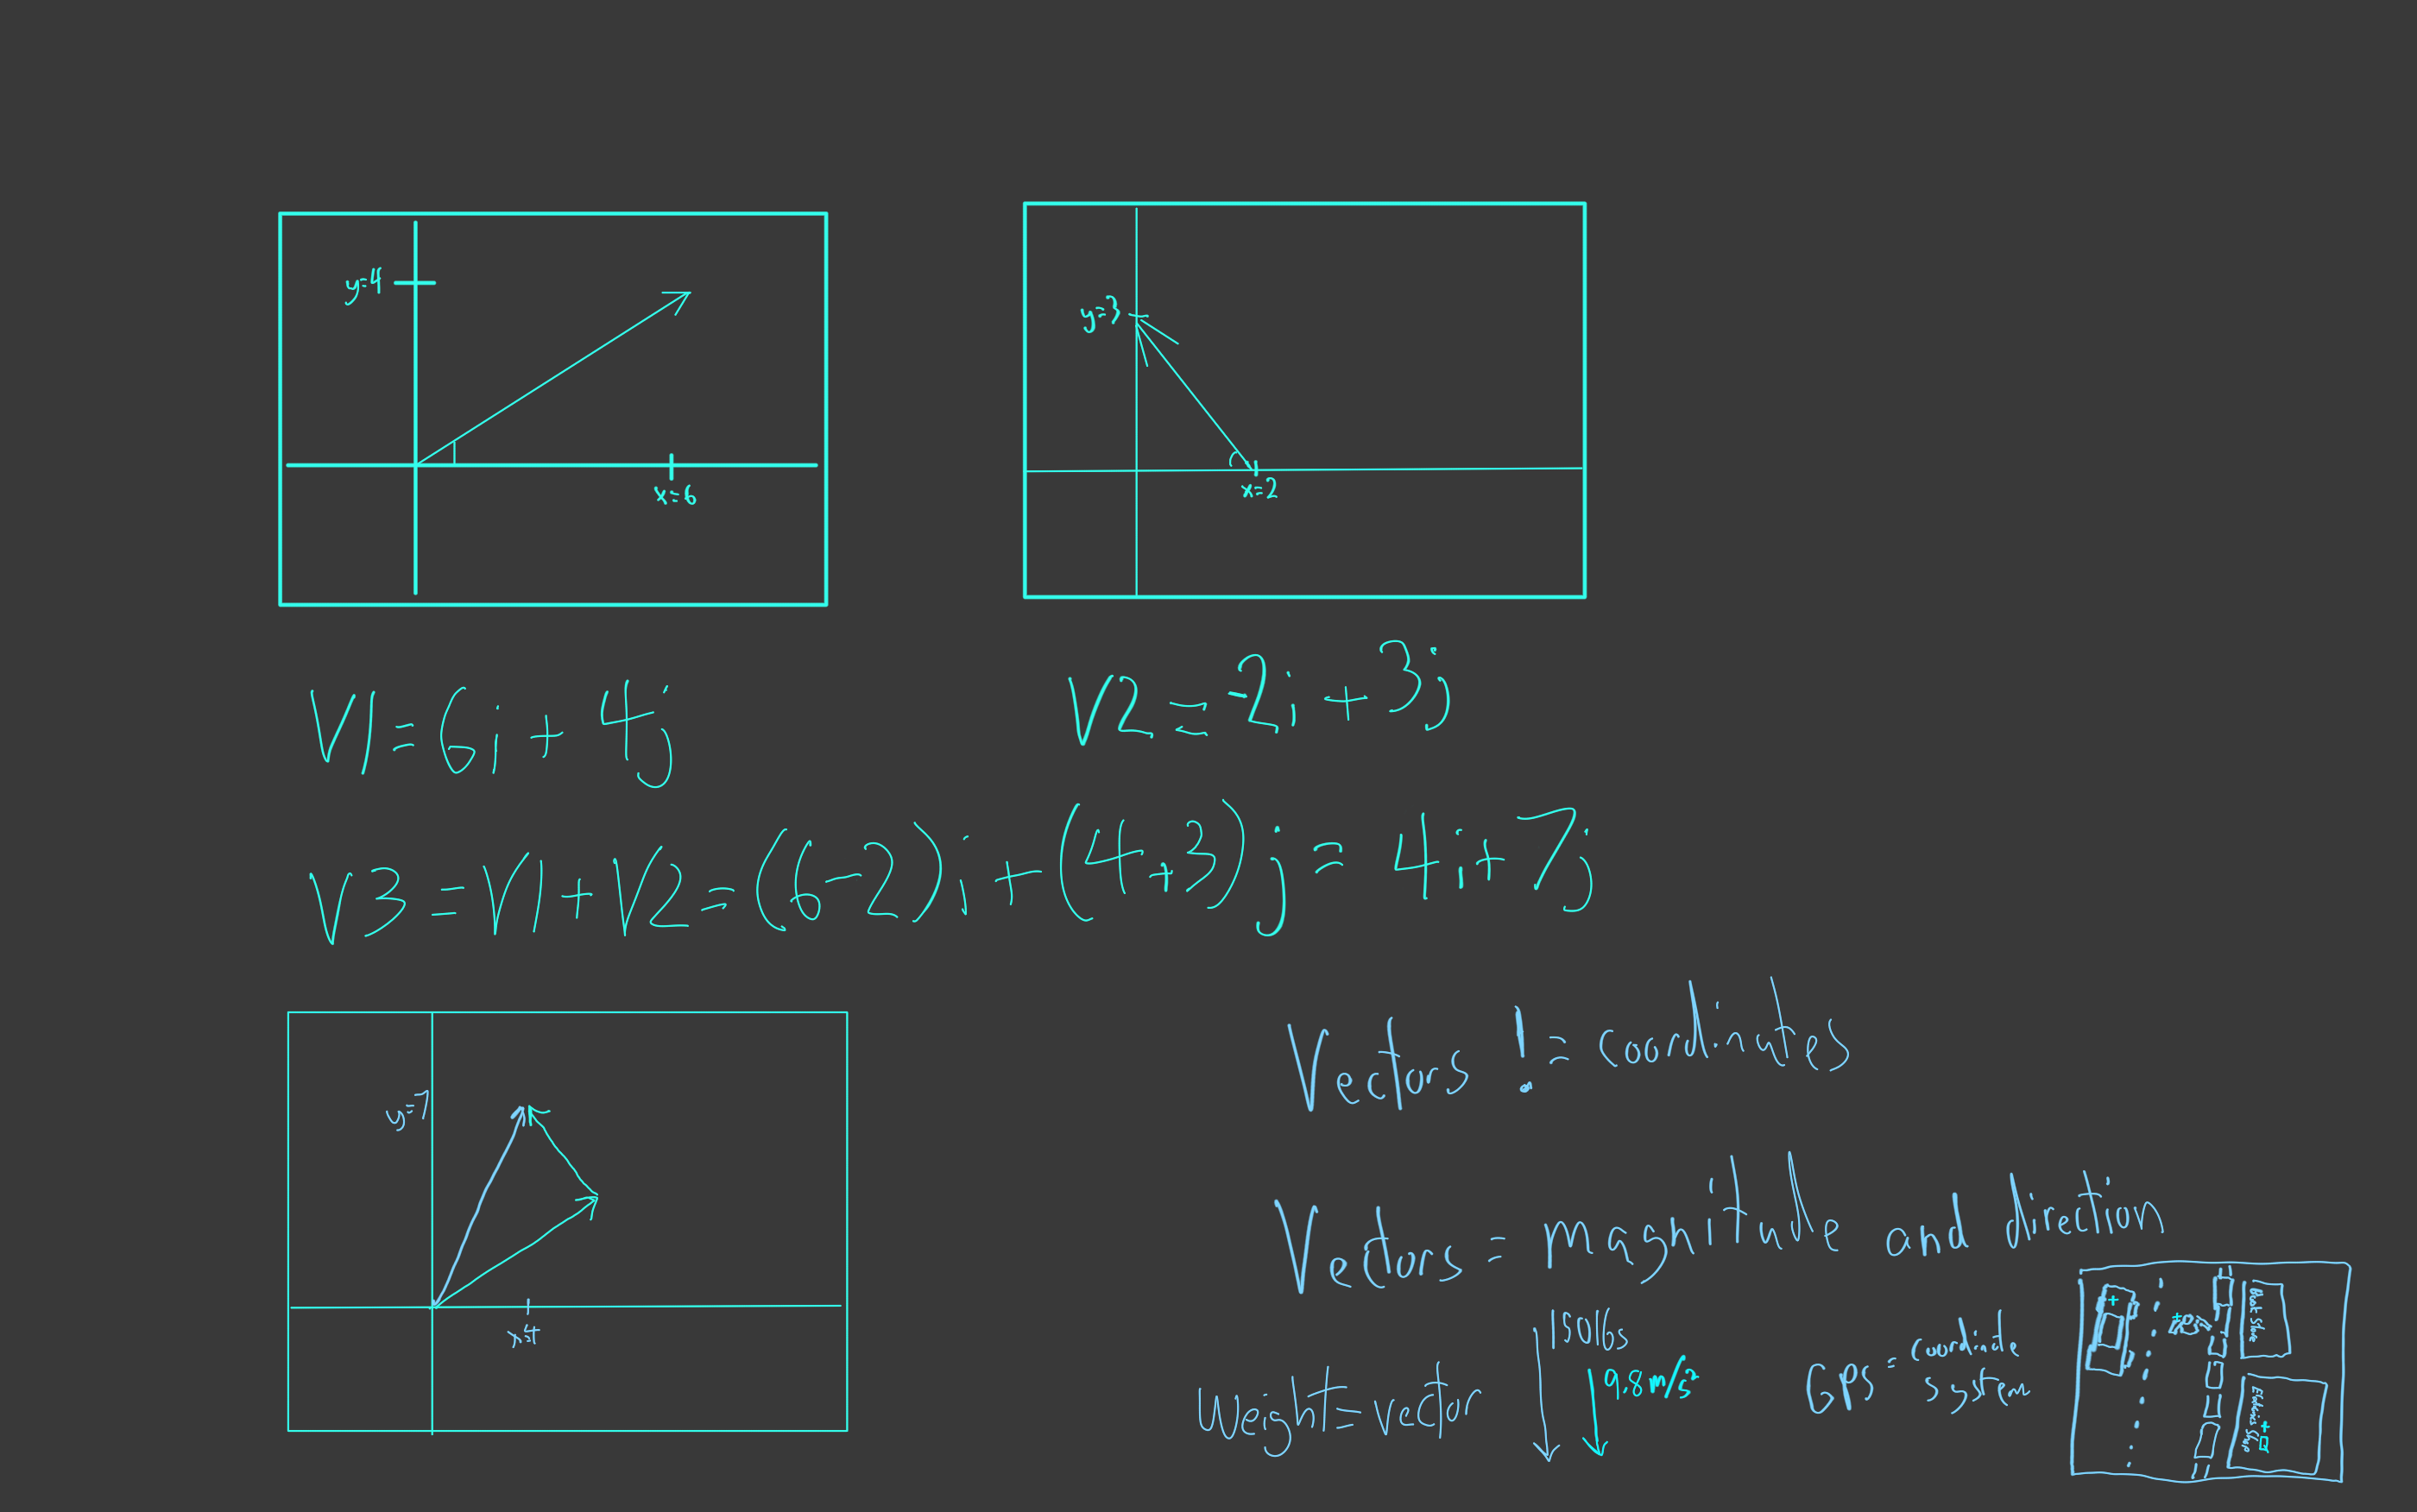 y=4
x=6
y=3
x=2
V1=6i+4j
V2=-2i+3j
V3=V1+V2=(6-2)i+(4+3)j=4i+7j
y=7
x=4
Vectors != coordinates
Vectors = magnitude and direction
Weight=vector
150lbs
9.8m/s²
Best Shop